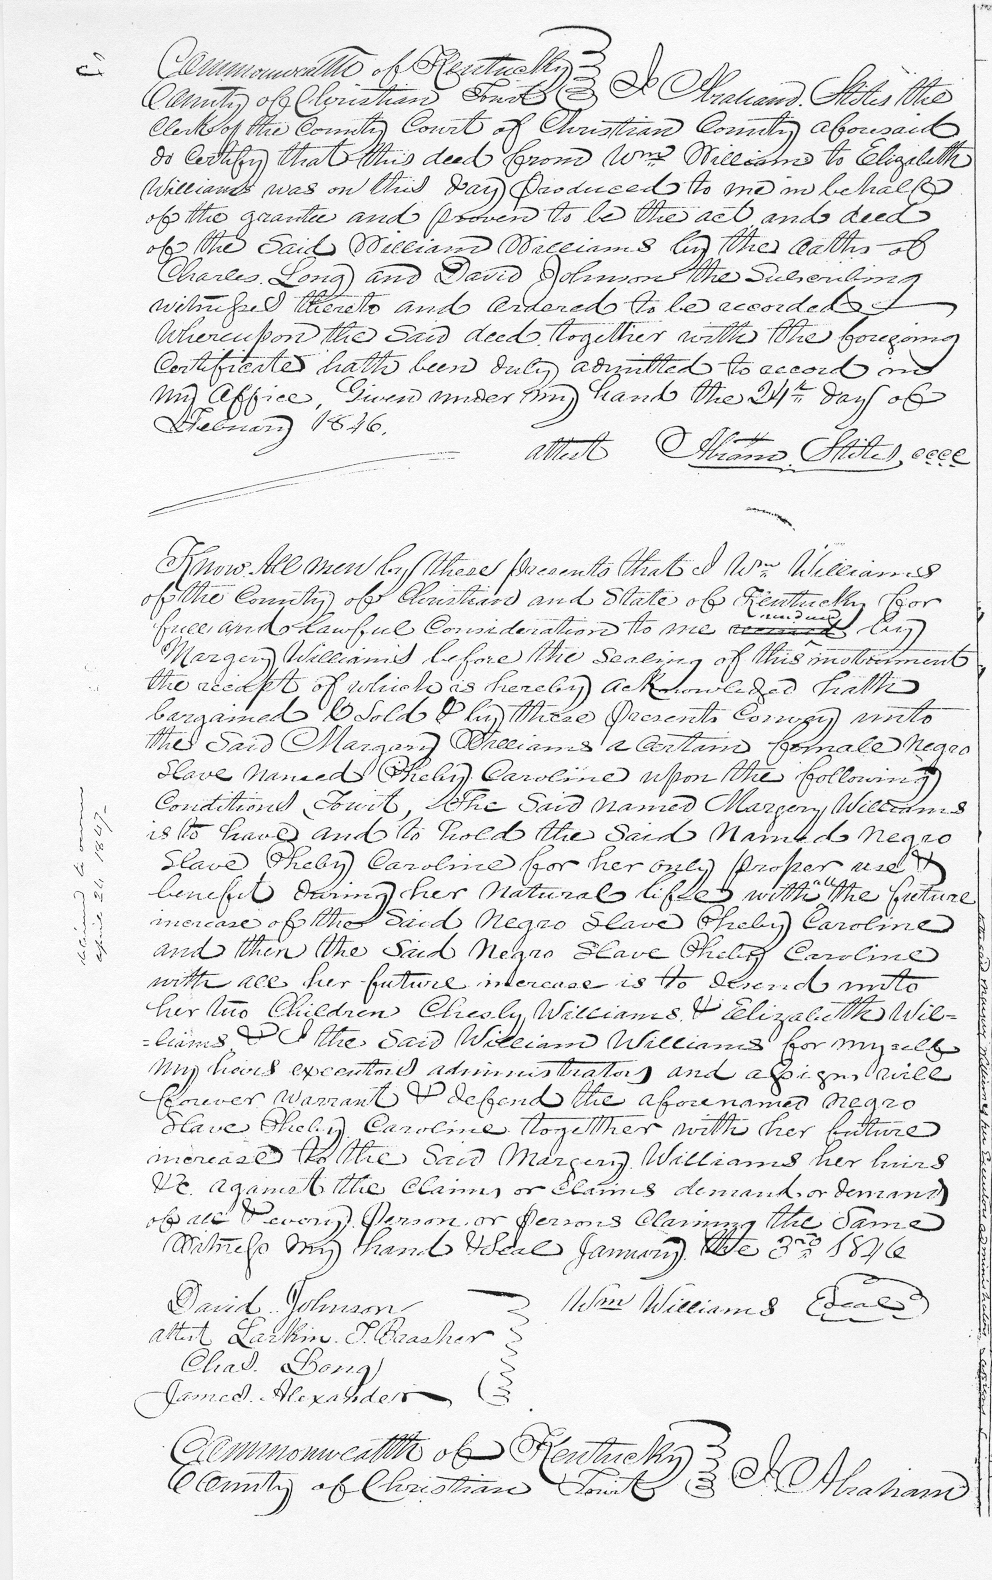 Commonwealth of Kentucky
County of Christian Towit I Abraham Stites the
Clerk of the County Court of Christian County aforesaid
do certify that this deed from Wm William to Elizabeth
Williams was on this day produced to me in behalf
of the grantee and proven to be the act and deed
of the Said William Williams by the oaths of
Charles Long and David Johnson the Subscribing
witnesses thereto and ordered to be recorded
Whereupon the Said deed together with the foregoing
Certificate hath been duly admitted to record in
my office, Given under my hand the 24th day of
February 1846.
attest Abram Stites cccc
Know All men by these presents that I Wm Williams
of the County of Christian and State of Kentucky for
full and lawful Consideration to me
by
Margery Williams before the Sealing of this instrument
the receipt of which is hereby acknowledged hath
bargained & Sold & by these presents Convey unto
the Said Margary Williams a Certain female Negro
Slave named Pheby Caroline upon the following
Conditions Towit, The Said named Margery Williams
is to have and to hold the Said Named Negro
Slave Pheby Caroline for her only proper use &
benefit during her natural life with all the future
increase of the Said Negro Slave Pheby Caroline
and then the Said Negro Slave Pheby Caroline
with all her future increase is to desend unto
her two Children Chesly Williams & Elizabeth Wil=
=liams & I the Said William Williams for myself
my heirs executors administrators and assigns will
forever warrant & defend the aforenamed negro
Slave Pheby Caroline together with her future
increase to the Said Margery Williams her hairs
&c. against the Claims or Claims demand or demands
of all & every Person or persons Claiming the Same
Witness my hand & Seal January the 3rd 1846
David Johnson Wm Williams Seal
attest Larkin T. Brasher
Chas. Long
James Alexander
Commonwealth of Kentucky
County of Christian Towit I Abraham